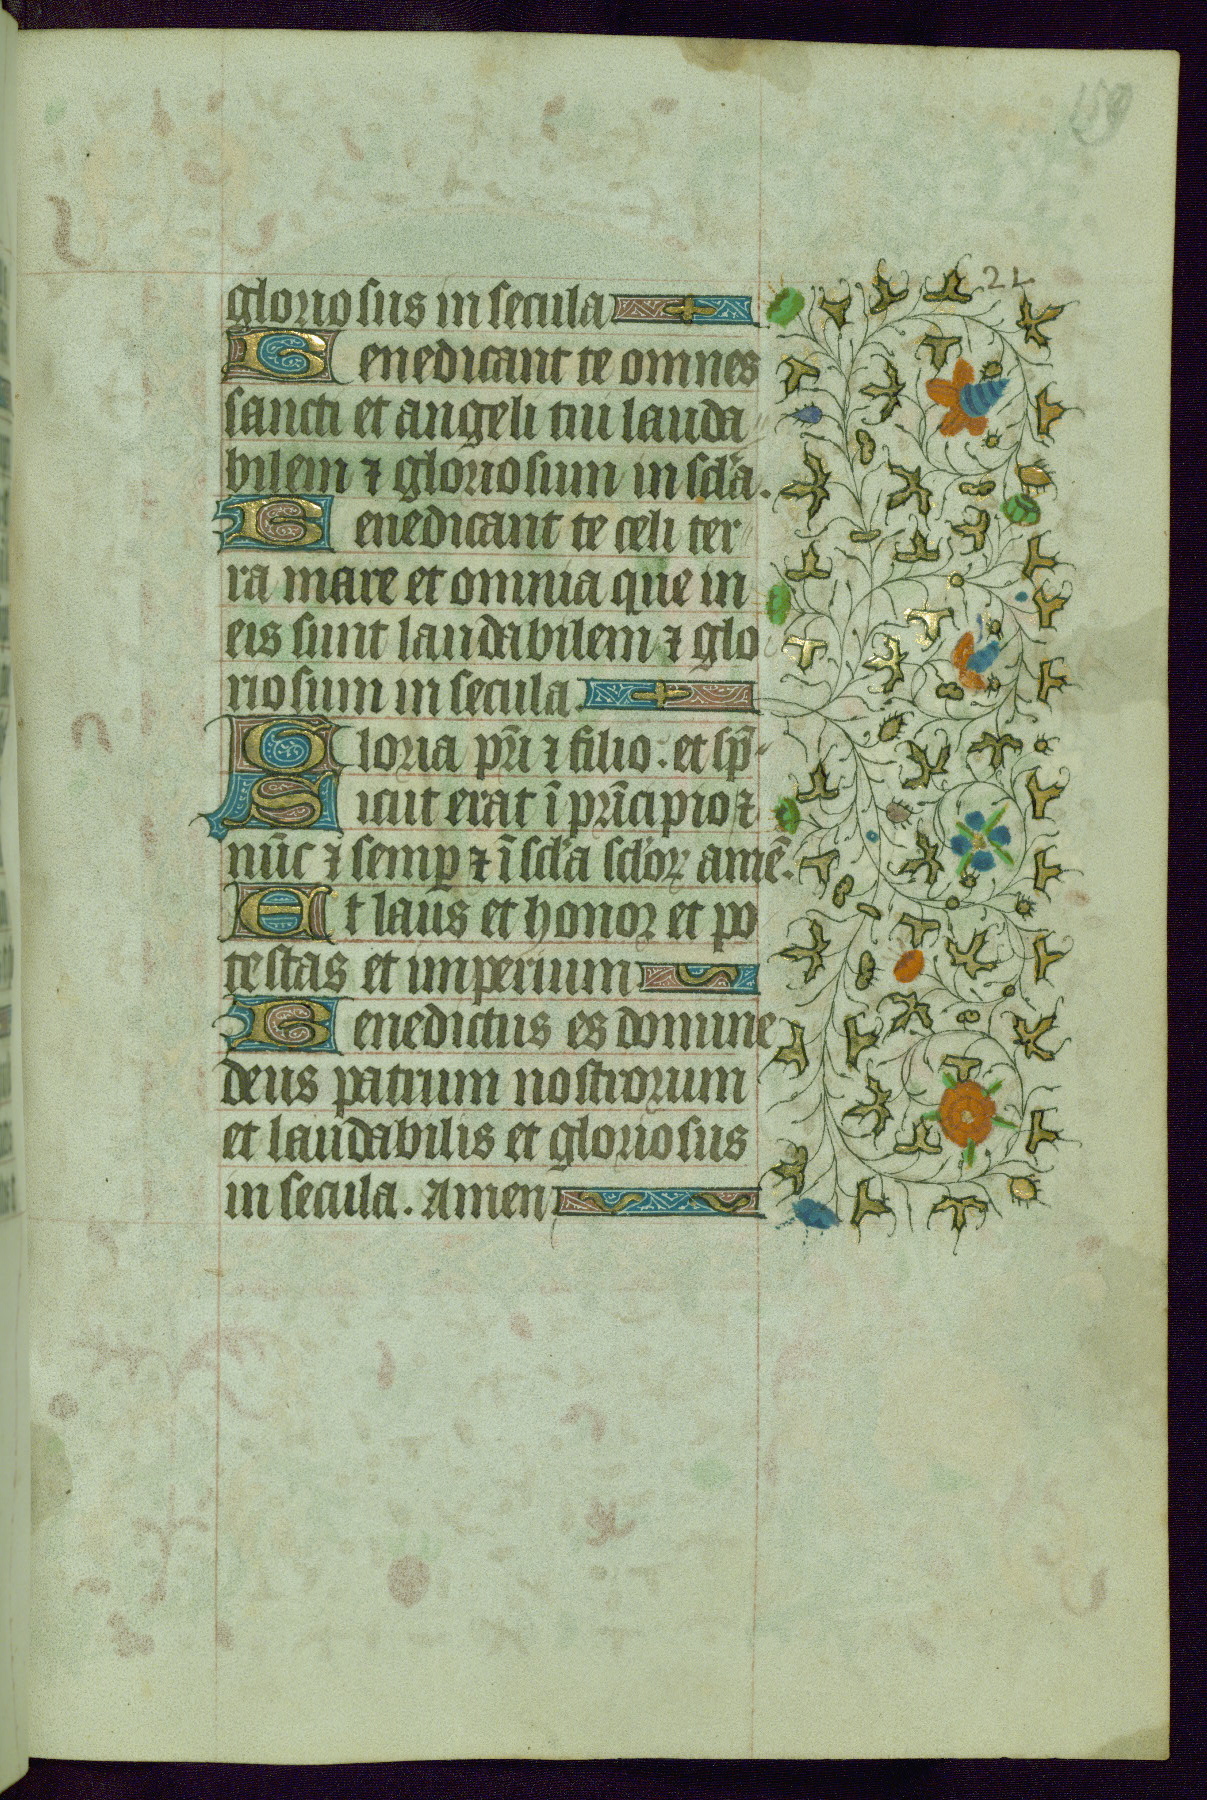 159
24
gloriosus in secula
Benedicant te omnes
sancti et angeli tui lauda
bilem ⁊ gloriosum in sc̄l'a.
Benedicant te celi ter
ra mare et omnia que in
eis sunt laudabilem ⁊ glo
riosum in secula
Gloria pr̄i ⁊ filio: et sp̄
Sicut erat ī prīcipio ⁊
nūc ⁊ semꝑ ⁊ ī scl'a scl'oꝝ amē.
Et laus et honor et po
testas et imperium
Benedictus es domine
deus patrum nostrorum
et laudabilis et gloriosus
in secula. Amen